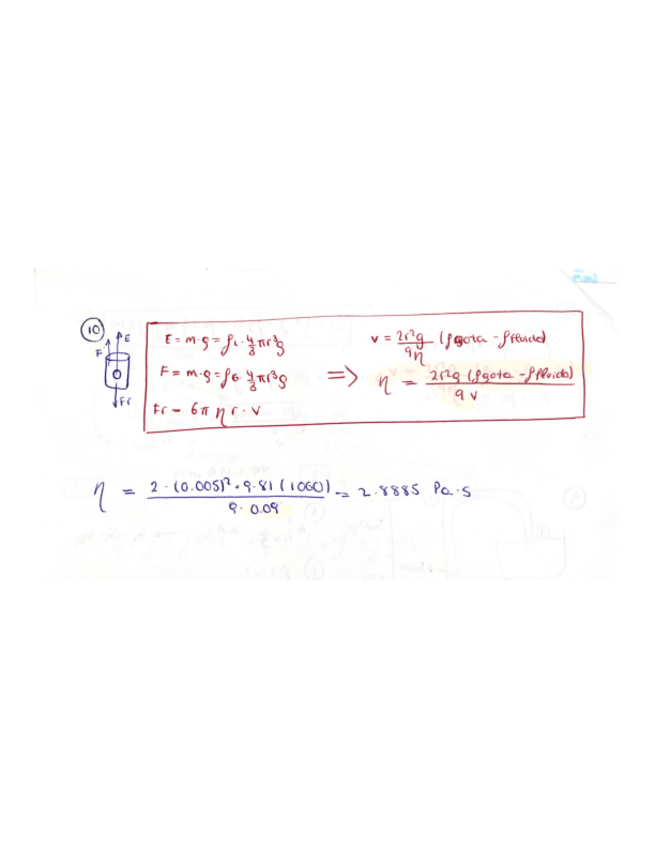 10
E
F
Fr
E = m·g = ρL · 4/3 πr³g
F = m·g = ρG · 4/3 πr³g
Fr = 6π η r · v
=>
v = 2r²g/9η (ρgota - ρfluido)
η = 2r²g (ρgota - ρfluido)/9v
η = 2·(0.005)²·9.81(1060)/9·0.09 = 2.8885 Pa·s